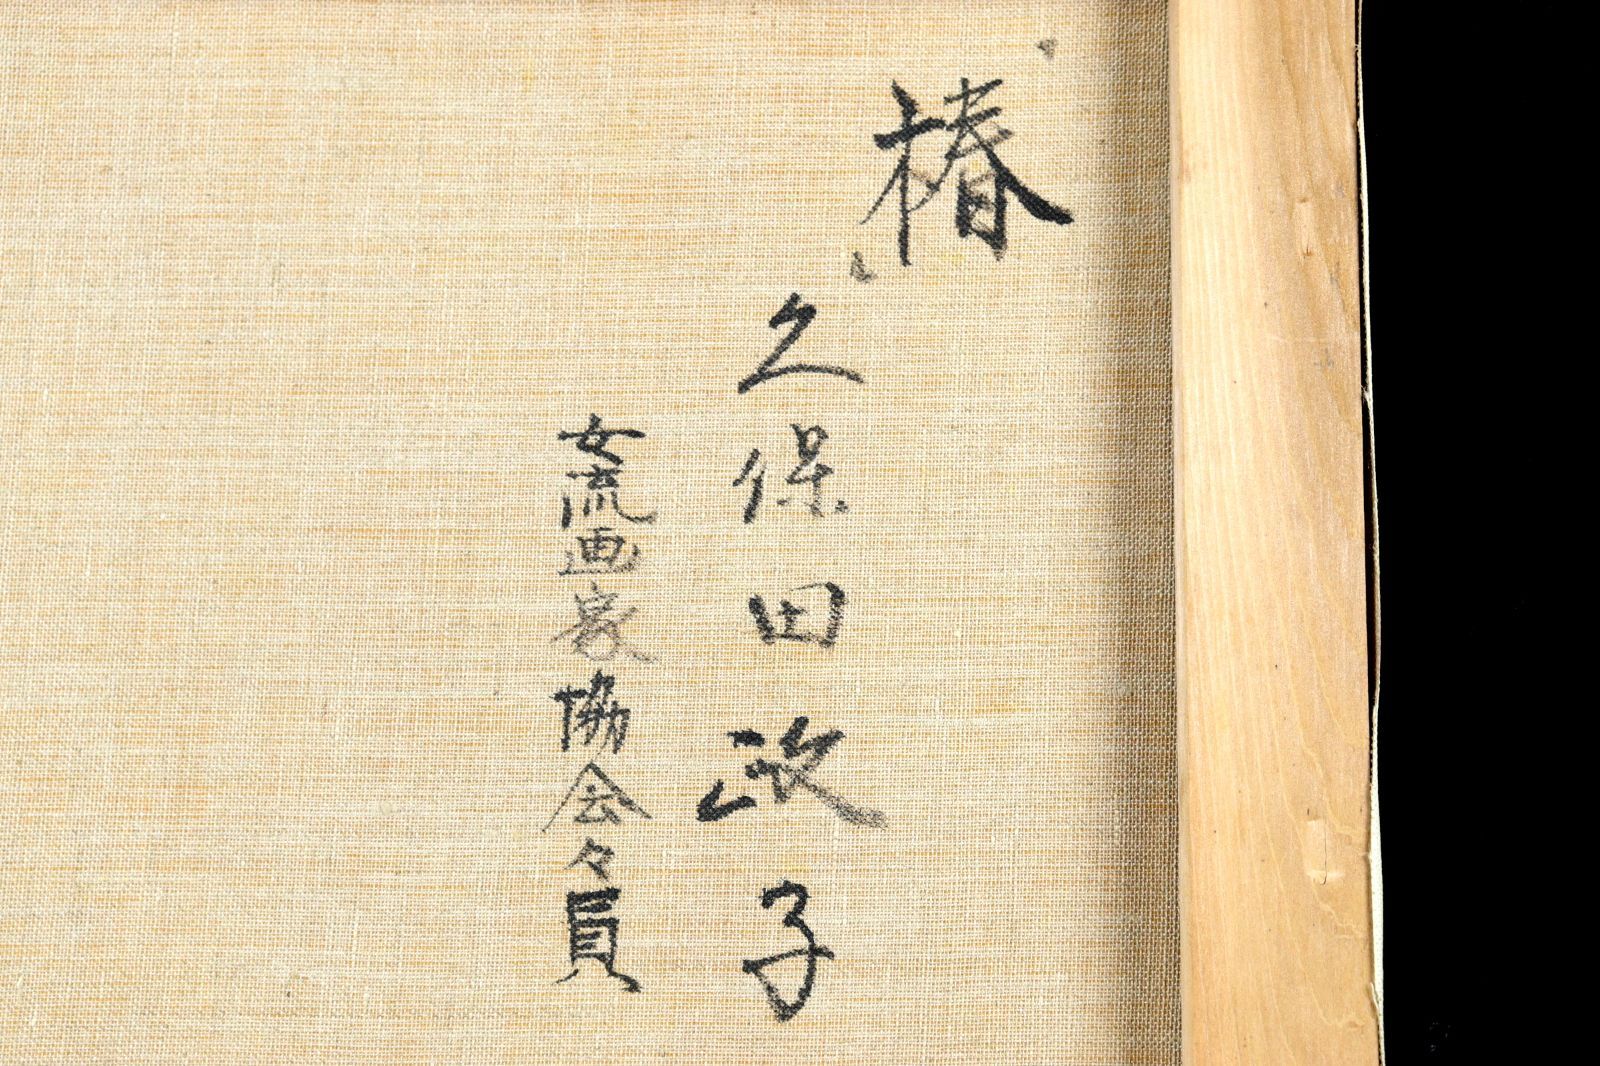 椿
久保田政子
女流画家協会々員